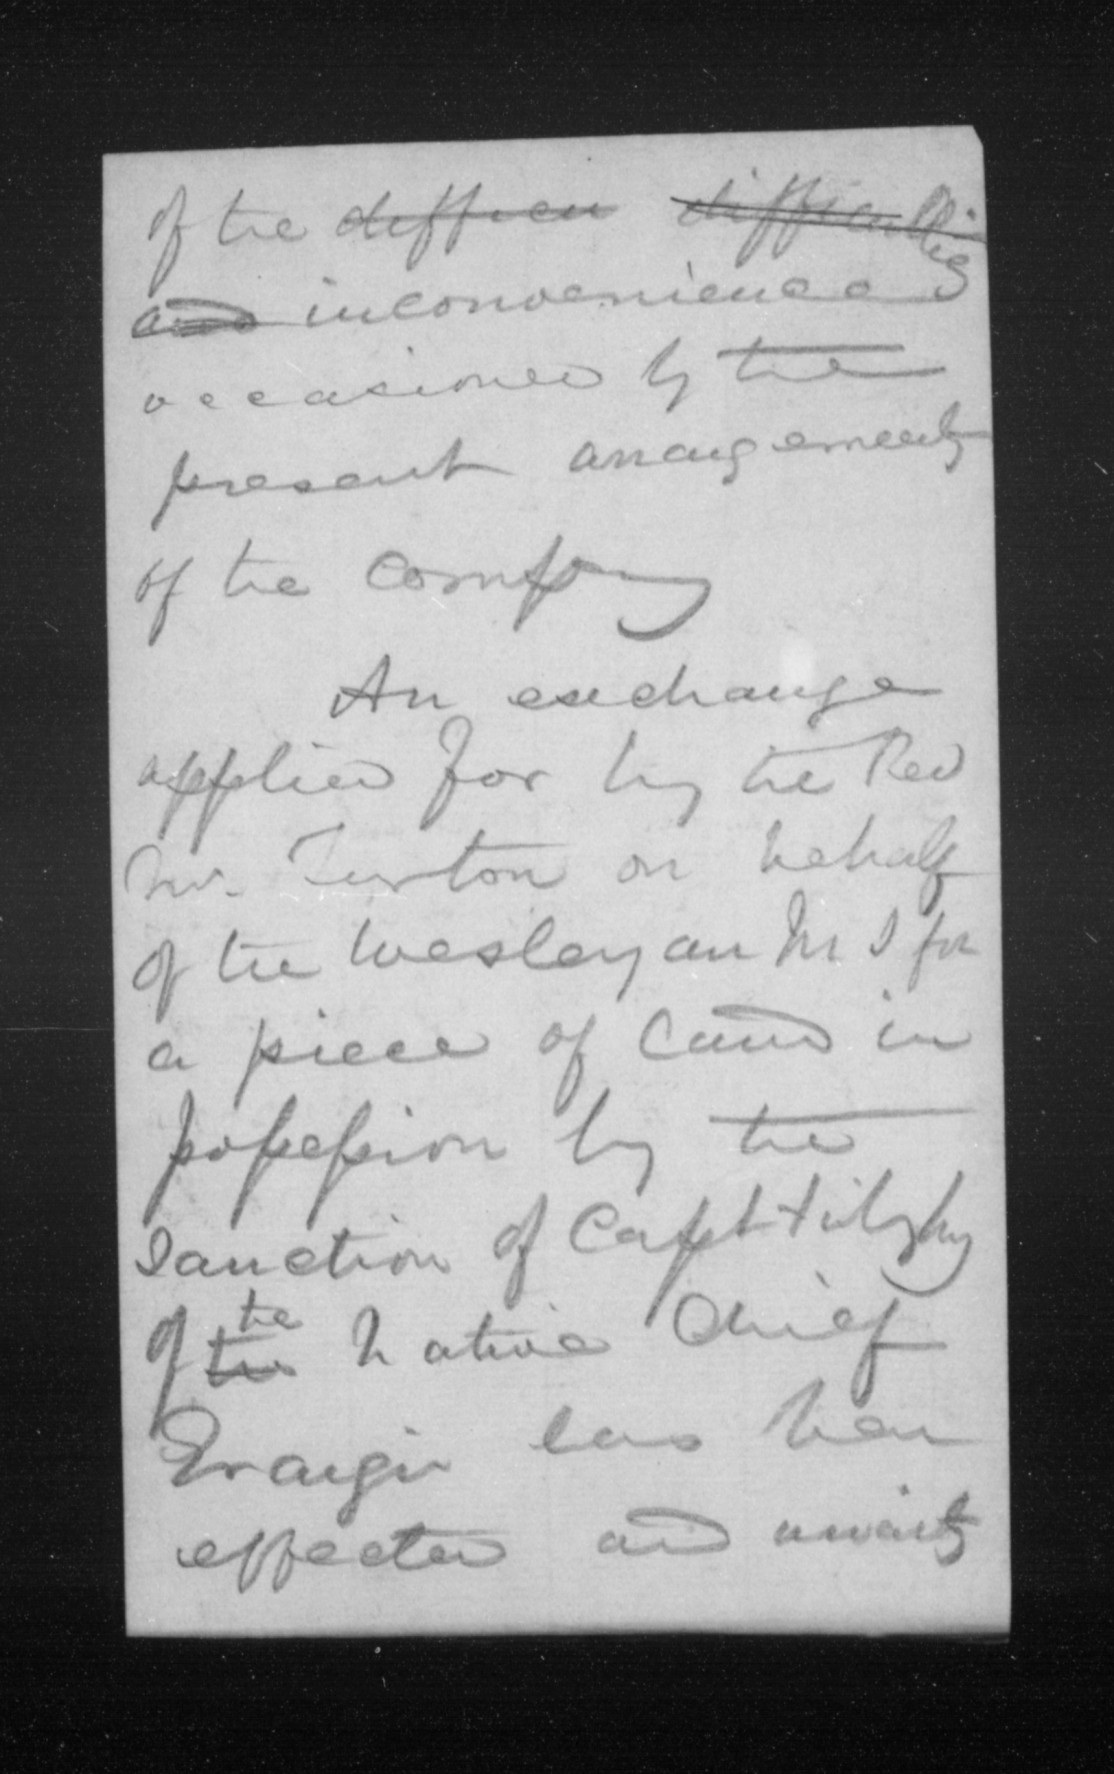 of the difficu difficulties
and inconveniences
occasioned by the
present arrangements
of the Company
An exchange
applied for by the Rev
Mr. Turton on behalf
of the Wesleyan M S for
a piece of land in
possession by the
sanction of Capt Fitzroy
of the the Native Chief
has been
effected and awaits